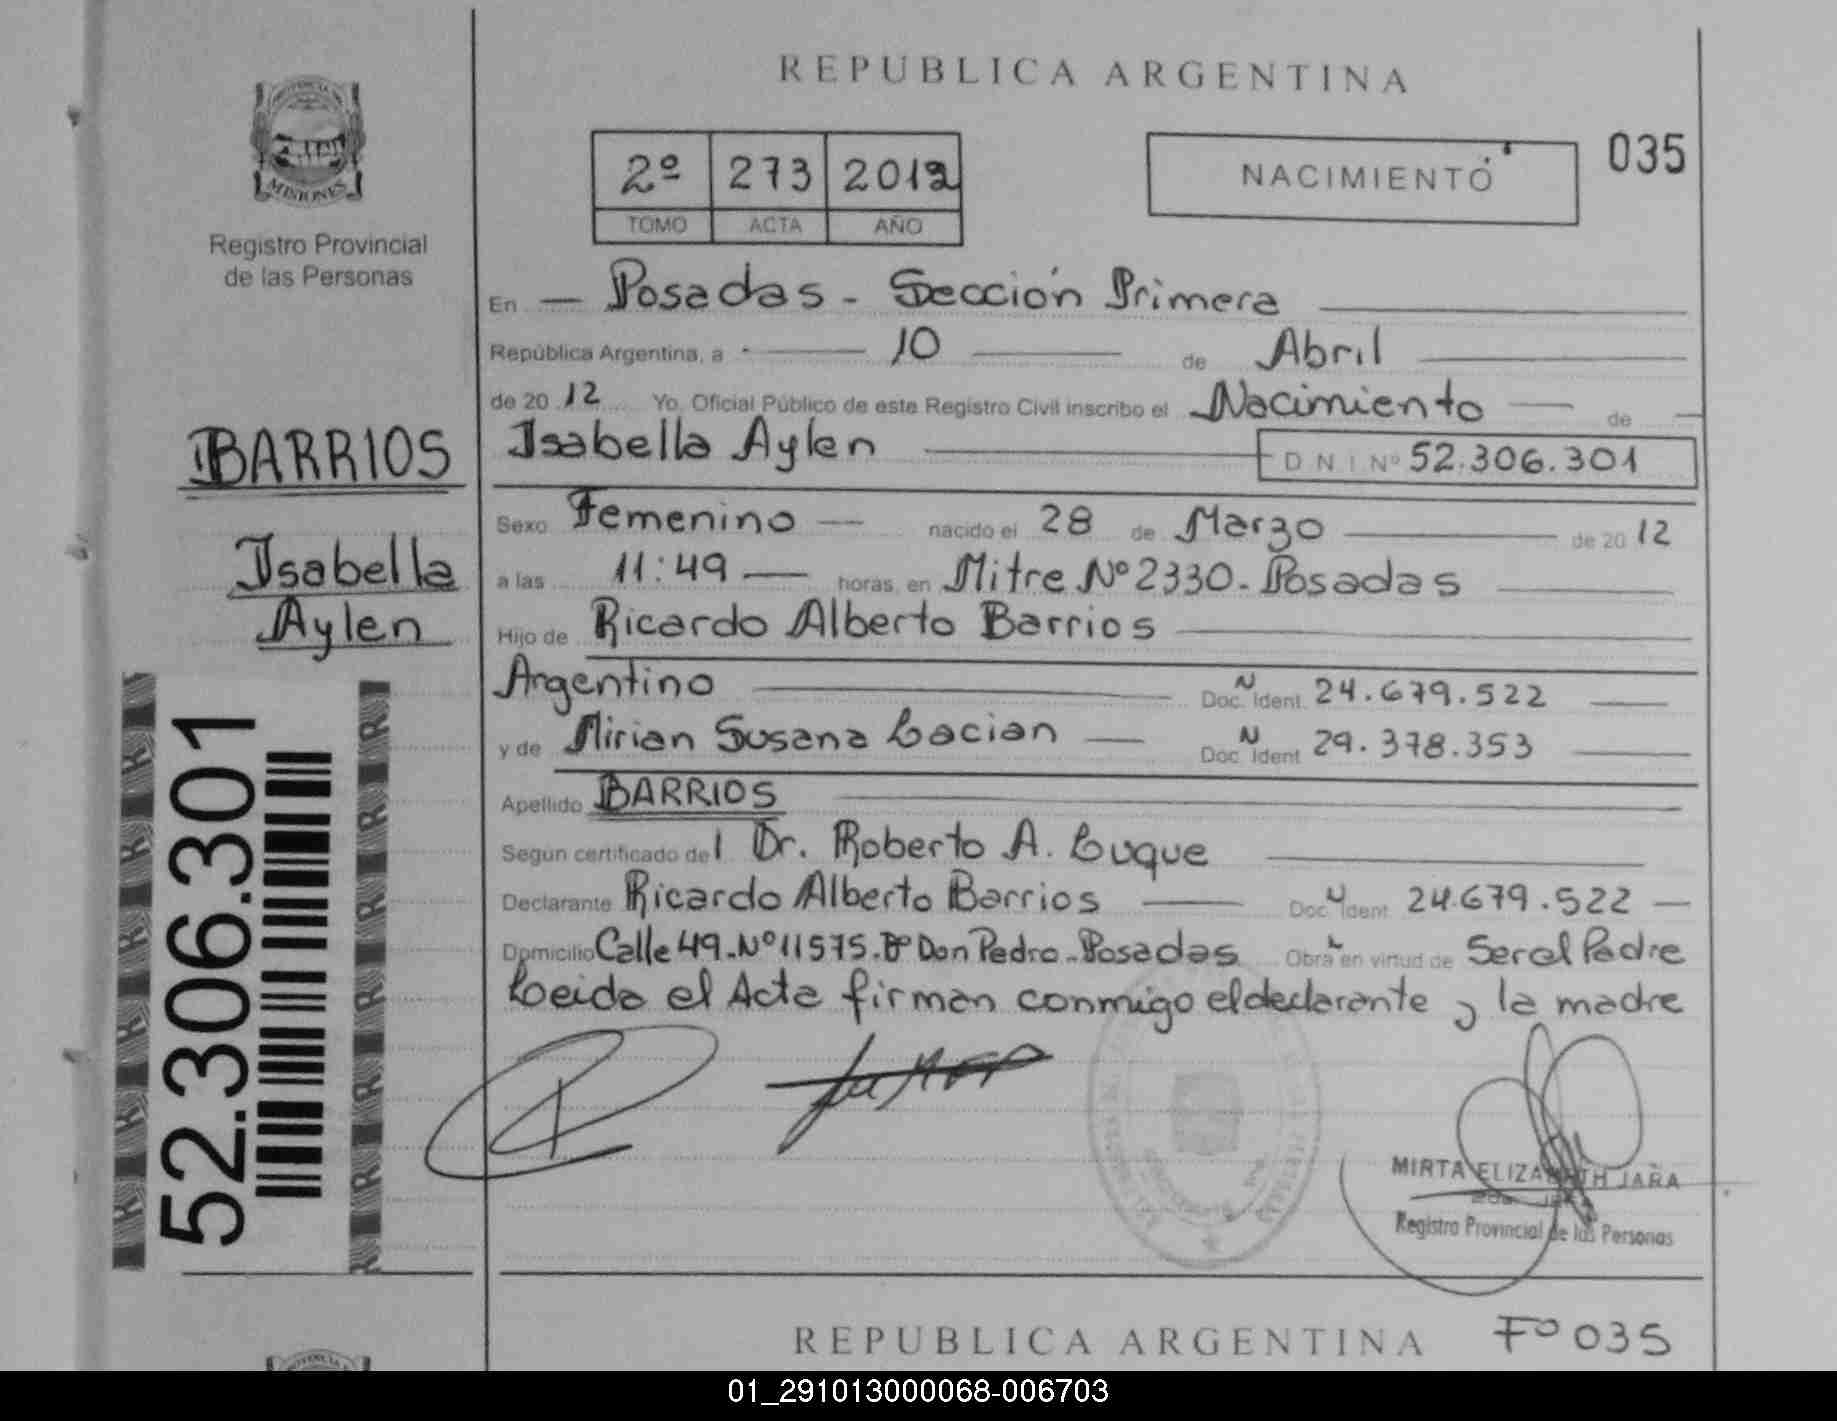 REPUBLICA ARGENTINA
MISIONES
Registro Provincial
de las Personas
2º 273 2012
TOMO ACTA AÑO
NACIMIENTO
035
En Posadas - Sección Primera
República Argentina, a 10 de Abril
de 2012 Yo, Oficial Público de este Registro Civil inscribo el Nacimiento de
BARRIOS
Isabella Aylen
DNI Nº 52.306.301
Isabella
Aylen
Sexo Femenino nacido el 28 de Marzo de 2012
a las 11:49 horas, en Mitre Nº 2330 - Posadas
Hijo de Ricardo Alberto Barrios
Argentino Doc. N Ident. 24.679.522
y de Mirian Susana Lacian Doc. N Ident. 29.378.353
Apellido BARRIOS
Según certificado del Dr. Roberto A. Luque
Declarante Ricardo Alberto Barrios Doc. Ident. 24.679.522
Domicilio Calle 49 - Nº 11575 - Bº Don Pedro - Posadas Obra en virtud de Ser el Padre
Leida el Acta firman conmigo el declarante y la madre
52.306.301
MIRTA ELIZABETH JARA
Registro Provincial de las Personas
REPUBLICA ARGENTINA
Fº 035
01_291013000068-006703